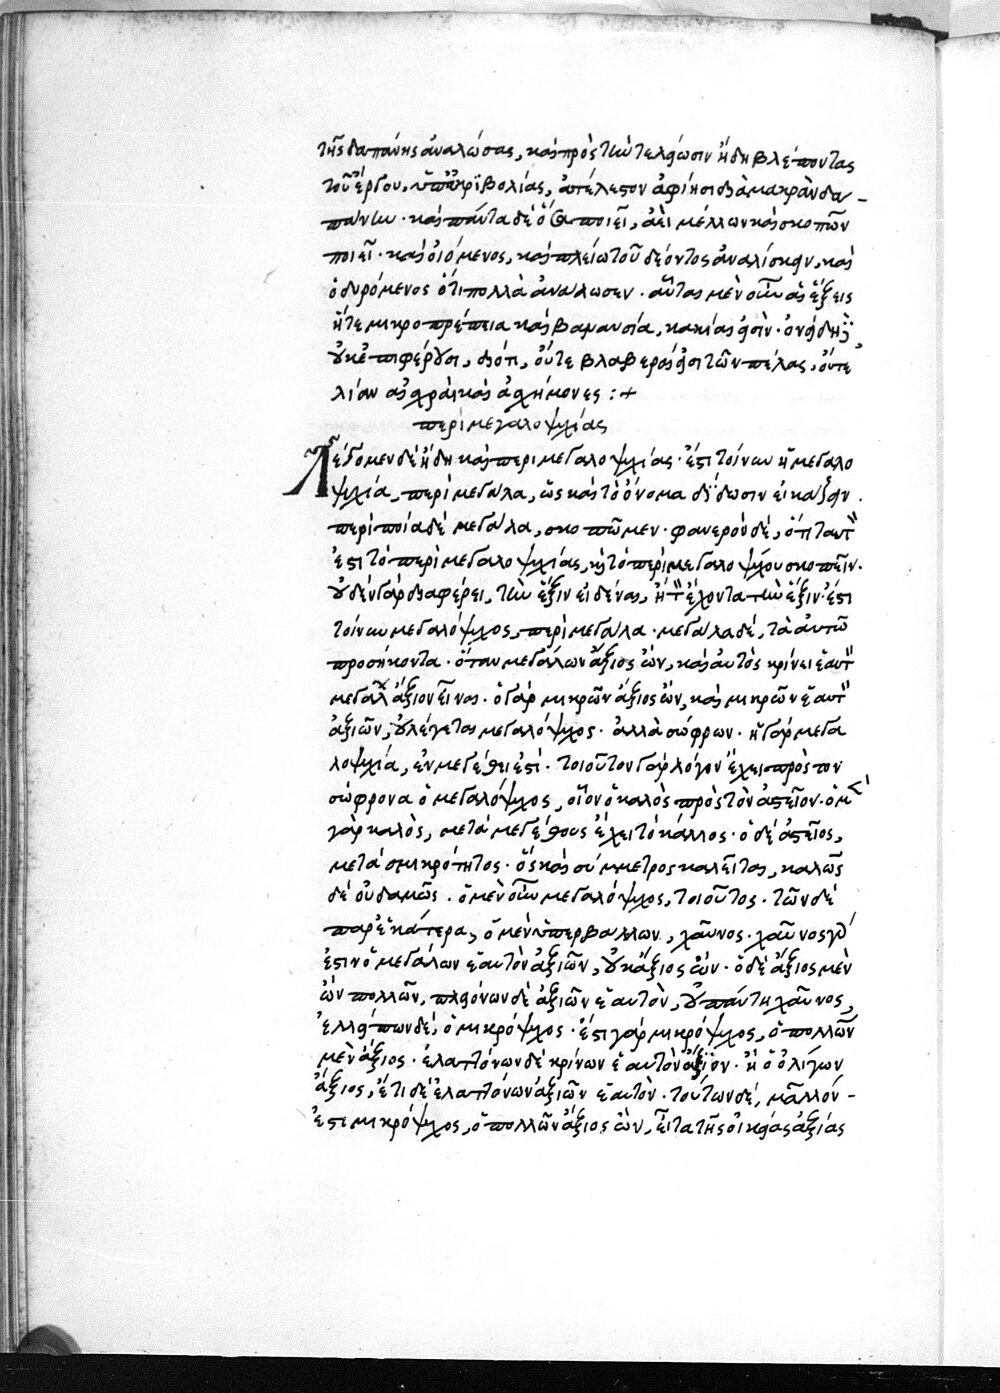 τῆς δαπάνης ἀναλώσας, καὶ πρὸς τὴν τελείωσιν ἤδη βλέποντας
τοῦ ἔργου, ὑπὸ ἀκριβολίας, ἀτέλεστον ἀφίησι διὰ μακρὰν δα-
πάνην. καὶ πάντα δὲ ὅσα ποιεῖ, ἀεὶ μέλλων καὶ σκοπῶν
ποιεῖ. καὶ οἰόμενος, καὶ πλείω τοῦ δέοντος ἀναλίσκειν, καὶ
ὀδυρόμενος ὅτι πολλὰ ἀνάλωσεν. αὗται μὲν οὖν αἱ ἕξεις
ἥτε μικροπρέπεια καὶ βαναυσία, κακίαι εἰσὶν. ὀνείδη
οὐκ ἐπιφέρουσι, διότι, οὔτε βλαβεραί εἰσι τῶν πέλας, οὔτε
λίαν αἰσχραὶ καὶ ἀσχήμονες :+
περὶ μεγαλοψυχίας
Λέγομεν δὲ ἤδη καὶ περὶ μεγαλοψυχίας. ἔστι τοίνυν ἡ μεγαλο
ψυχία, περὶ μεγάλα, ὡς καὶ τὸ ὄνομα δίδωσιν εἰκάζειν.
περὶ ποῖα δὲ μεγάλα, σκοπῶμεν. φανερὸν δέ, ὅτι ταυτ
ἐστι τὸ περὶ μεγαλοψυχίας, καὶ τὸ περὶ μεγαλοψύχου σκοπεῖν.
οὐδὲν γὰρ διαφέρει, τὴν ἕξιν εἰδέναι, ἢ τ ἔχοντα τὴν ἕξιν. ἔστι
τοίνυν μεγαλόψυχος, περὶ μεγάλα. μεγάλα δέ, τὰ αὐτῶ
προσήκοντα. ὅταν μεγάλων ἄξιος ὢν, καὶ αὐτὸς κρίνει ἑαυτ
μεγάλ ἄξιον εἶναι. ὁ γὰρ μικρῶν ἄξιος ὢν, καὶ μικρῶν ἑαυτ
ἀξιῶν, οὐ λέγεται μεγαλόψυχος. ἀλλὰ σώφρων. ἡ γὰρ μεγα
λοψυχία, ἐν μεγέθει ἐστί. τοιοῦτον γὰρ λόγον ἔχει πρὸς τον
σώφρονα ὁ μεγαλόψυχος, οἷον ὁ καλὸς πρὸς τὸν ἀστεῖον. ὁ μὲν
γὰρ καλὸς, μετὰ μεγέθους ἔχει τὸ κάλλος. ὁ δὲ ἀστεῖος,
μετὰ σμικρότητος. ὃς καὶ σύμμετρος καλεῖται, καλῶς
δὲ οὐδαμῶς. ὁ μὲν οὖν μεγαλόψυχος, τοιοῦτος. τῶν δὲ
παρ' ἑκάτερα, ὁ μὲν ὑπερβάλλων, χαῦνος. χαῦνος γάρ
ἐστιν ὁ μεγάλων ἑαυτὸν ἀξιῶν, οὐκ ἄξιος ὢν. ὁ δὲ ἄξιος μὲν
ὢν πολλῶν, πλειόνων δὲ ἀξιῶν ἑαυτὸν, οὐ πάντη χαῦνος,
ἐλλείπων δέ, ὁ μικρόψυχος. ἔστι γὰρ μικρόψυχος, ὁ πολλῶν
μὲν ἄξιος. ἐλαττόνων δὲ κρίνων ἑαυτὸν ἄξιον. ἢ ὁ ὀλίγων
ἄξιος, ἔτι δὲ ἐλαττόνων ἀξιῶν ἑαυτὸν. τούτων δέ, μᾶλλόν-
ἐστι μικρόψυχος, ὁ πολλῶν ἄξιος ὢν, εἶτα τῆς οἰκείας ἀξίας